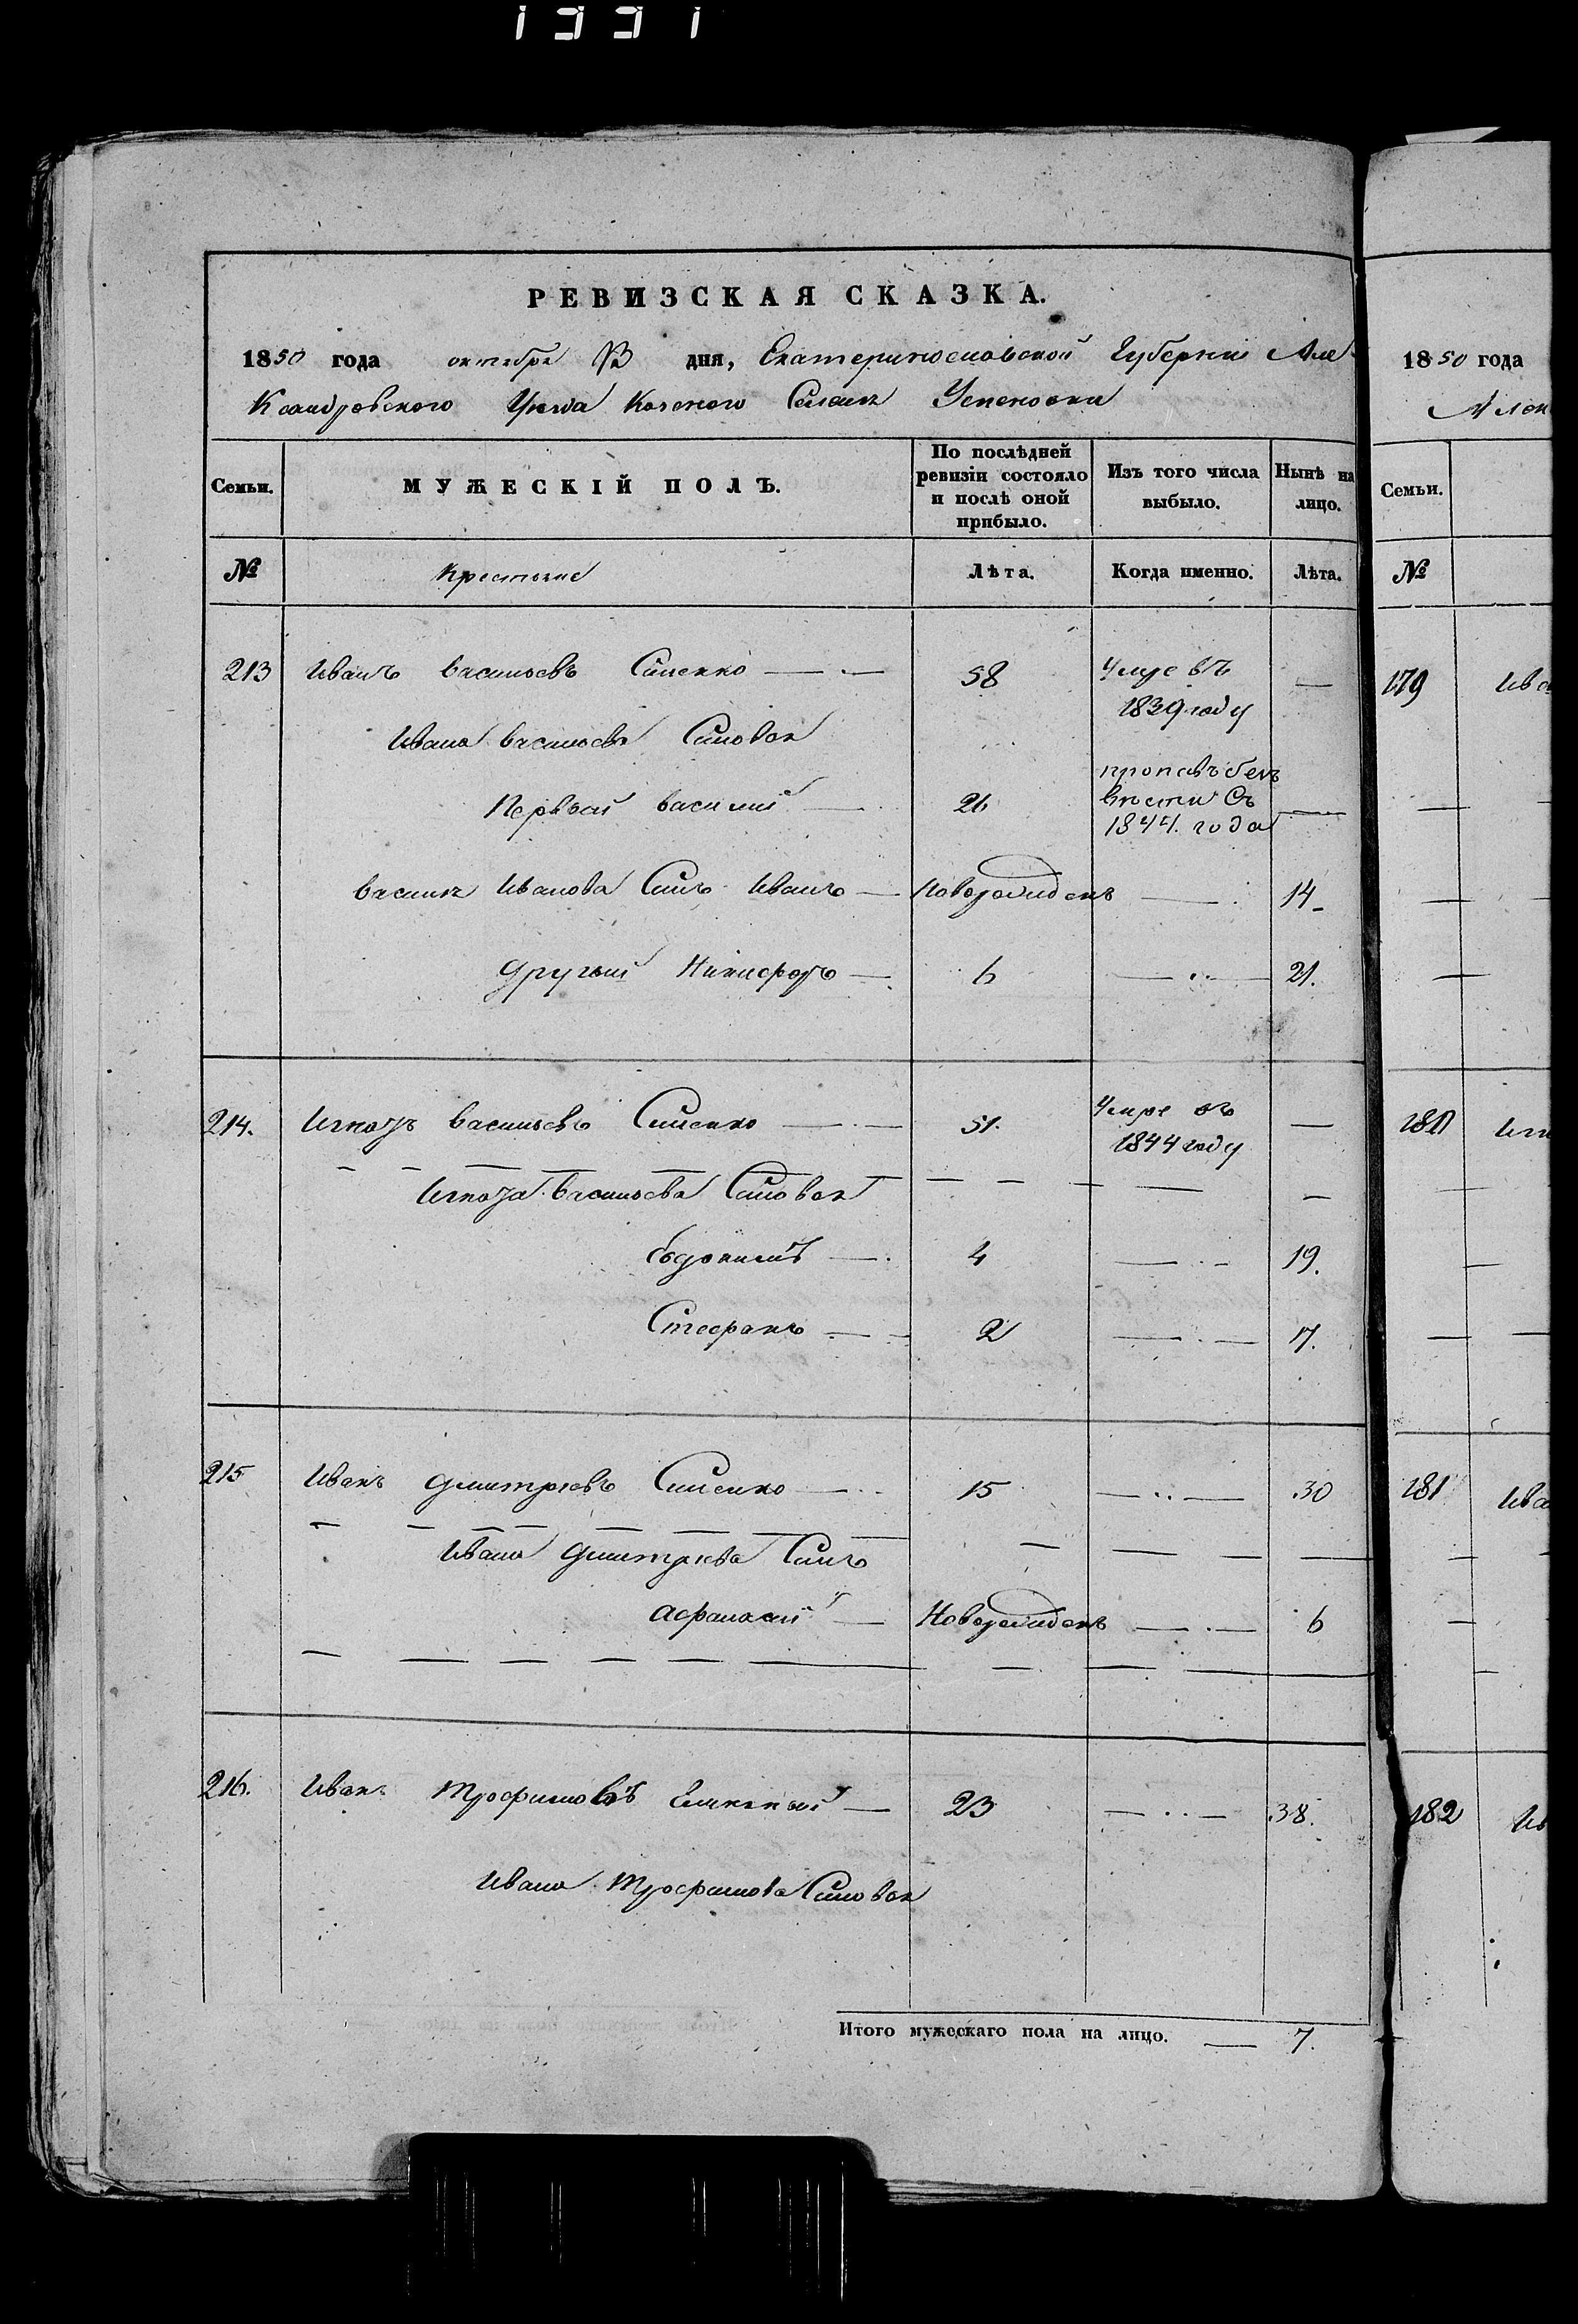 1331
РЕВИЗСКАЯ СКАЗКА.
1850 года октября дня, Екатеринославской Губернии Але
Ксандровского Уезда Казеного Селенія Успеновки
Семьи. МУЖЕСКІЙ ПОЛЪ. По послѣдней ревизіи состояло и послѣ оной прибыло. Изъ того числа выбыло. Нынѣ на лицо.
№ Крестьяне Лѣта. Когда именно. Лѣта.
213 Иванъ Васильевъ 58 Умре въ 1839 году —
Ивана Васильева Сыновья
Первый Василий — 26 пропавъ безъ вѣсти Съ 1844. года —
Василія Иванова Сынъ Иванъ — Новорожденъ — 14
Другий Никифоръ — 6 — 21.
214. Игнатъ Васильевъ — 51. Умре въ 1844 году —
Игната Васильева Сыновья
4 — 19.
Стефанъ — 2 — 17.
215 Иванъ Дмитріевъ — 15 — 30
Ивана Дмитріева Сынъ
Афанасий — Новорожденъ — 6
216. Иванъ Трофимовъ — 23 — 38.
Ивана Трофимова Сыновья
Итого мужескаго пола на лицо. — 7.
1850 года
Семьи.
№
179 Ива
180 Игн
181 Ива
182 Ив